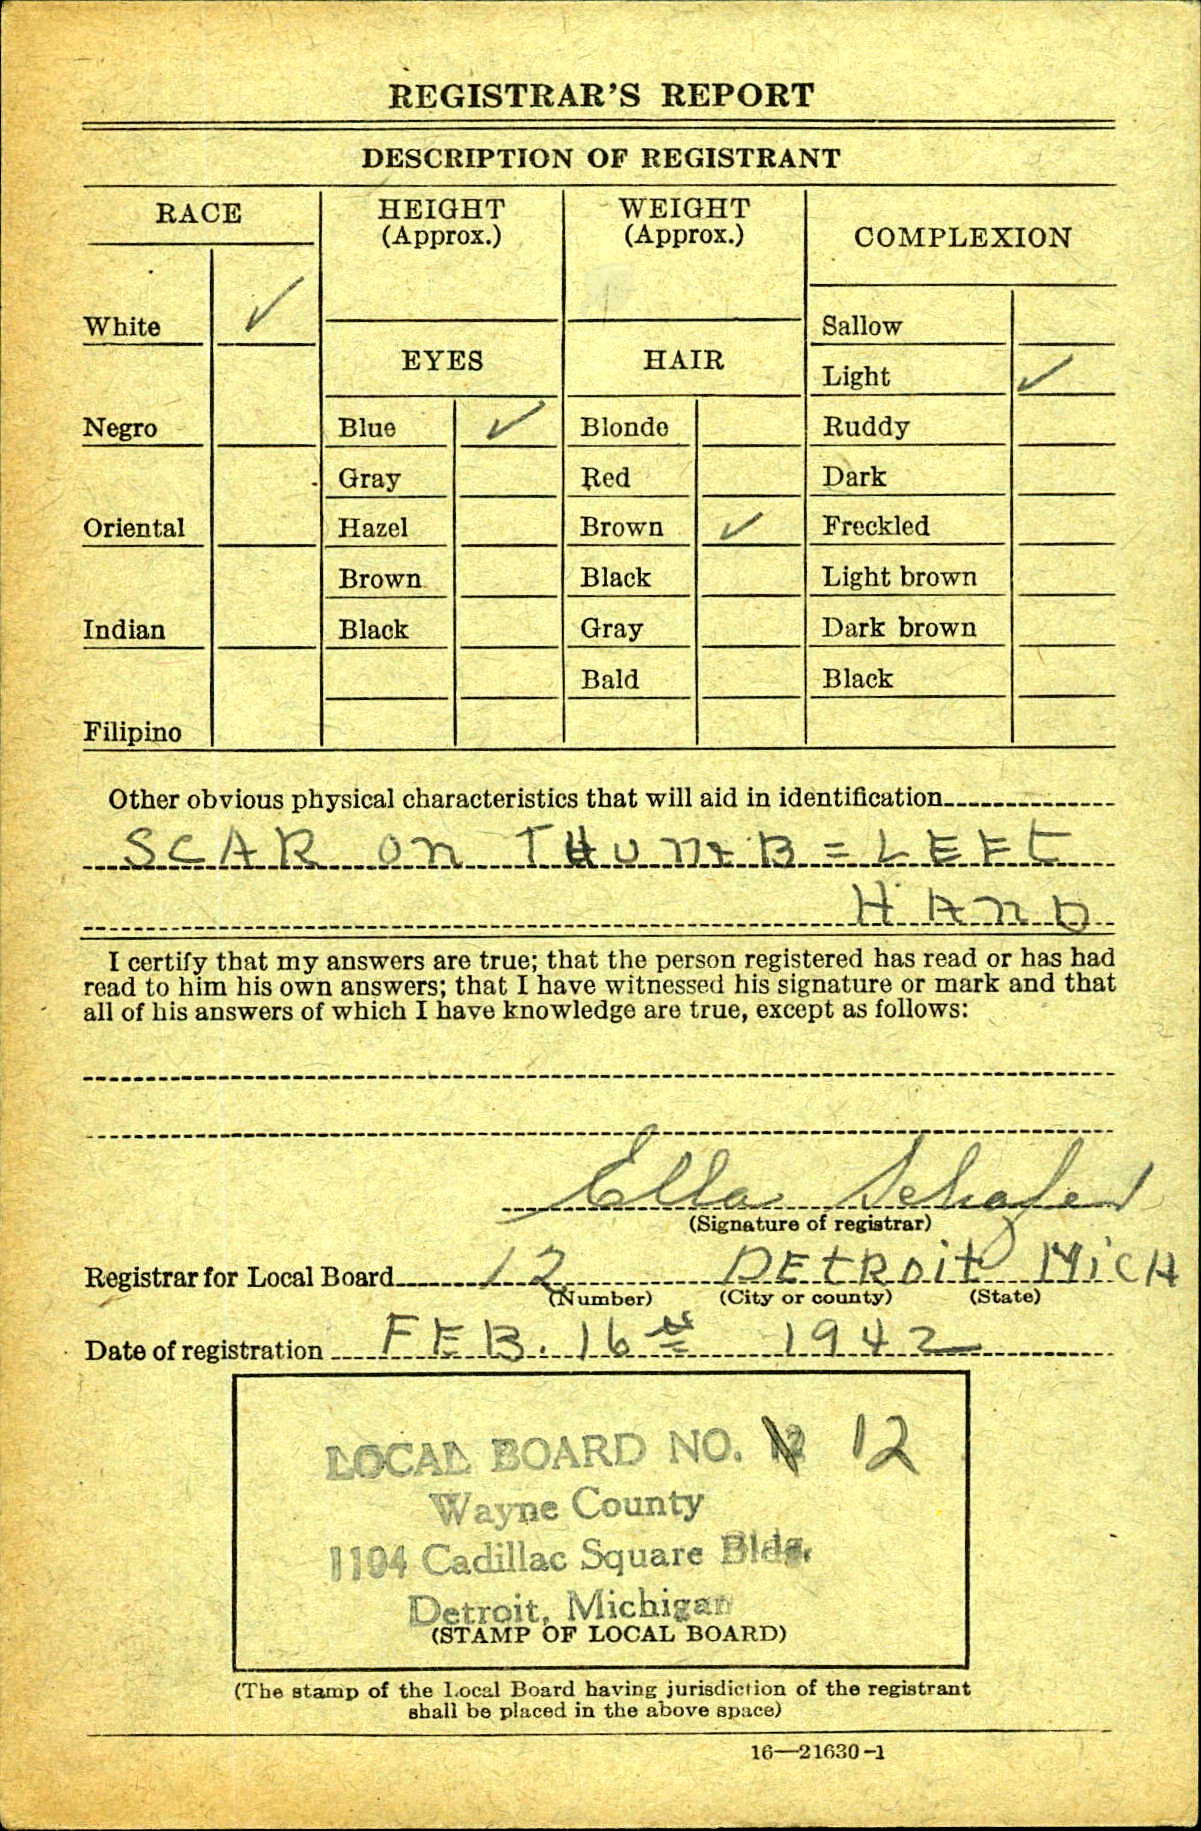 REGISTRAR'S REPORT
DESCRIPTION OF REGISTRANT
RACE
White ✓
Negro
Oriental
Indian
Filipino
HEIGHT
(Approx.)
WEIGHT
(Approx.)
EYES
Blue ✓
Gray
Hazel
Brown
Black
HAIR
Blonde
Red
Brown ✓
Black
Gray
Bald
COMPLEXION
Sallow
Light ✓
Ruddy
Dark
Freckled
Light brown
Dark brown
Black
Other obvious physical characteristics that will aid in identification
SCAR ON THUMB = LEFT
HAND
I certify that my answers are true; that the person registered has read or has had
read to him his own answers; that I have witnessed his signature or mark and that
all of his answers of which I have knowledge are true, except as follows:
Ella Schafer
(Signature of registrar)
Registrar for Local Board 12 DETROIT MICH
(Number) (City or county) (State)
Date of registration FEB. 16th 1942
LOCAL BOARD NO. 12
Wayne County
1104 Cadillac Square Bldg.
Detroit, Michigan
(STAMP OF LOCAL BOARD)
(The stamp of the Local Board having jurisdiction of the registrant
shall be placed in the above space)
16—21630-1